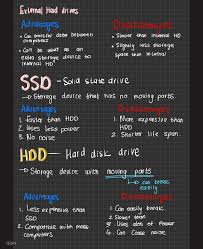 External Hard drives
Advantages
Disadvantages
• Can transfer data between
computers
• Can be used as an
extra storage device to
internal HD
• Slower than internal HD
• Slightly less storage
space than internal
SSD - Solid state drive
↳ Storage device that has no moving parts.
Advantages
Disadvantages
1. Faster than HDD
2. Uses less power
3. No noise
1. More expensive than
HDD
2. Shorter life span.
HDD - Hard disk drive
↳ Storage device with moving parts
↳ can break
easily
Advantages
Disadvantages
1. Less expensive than
SSD
2. Compatible with most
computers
1. Can easily break.
2. Slower than
3. Uses alot of Power
4. Can cause Noise